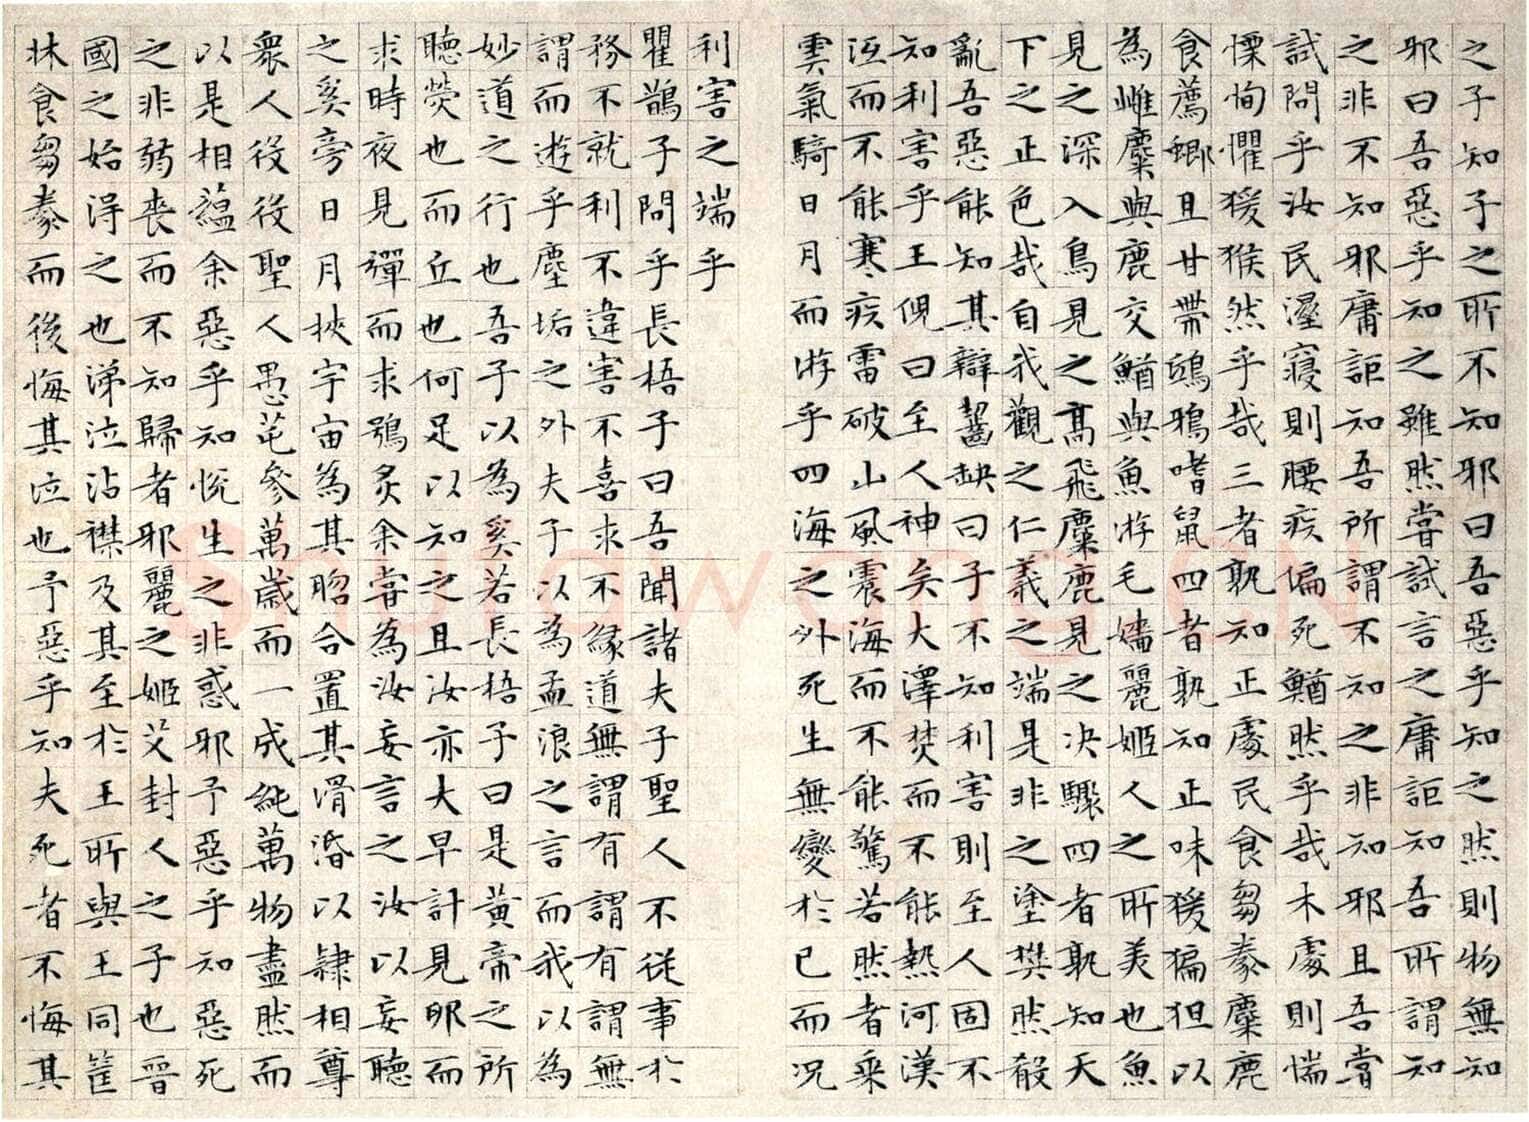 之子知子之所不知邪曰吾惡乎知之然則物無知
邪曰吾惡乎知之雖然嘗試言之庸詎知吾所謂知
之非不知邪庸詎知吾所謂不知之非知邪且吾嘗
試問乎汝民溼寢則腰疾偏死鰌然乎哉木處則惴
慄恂懼猨猴然乎哉三者孰知正處民食芻豢麋鹿
食薦蝍且甘帶鴟鴉嗜鼠四者孰知正味猨猵狙以
為雌麋與鹿交鰌與魚游毛嬙麗姬人之所美也魚
見之深入鳥見之高飛麋鹿見之决驟四者孰知天
下之正色哉自我觀之仁義之端是非之塗樊然殽
亂吾惡能知其辯齧缺曰子不知利害則至人固不
知利害乎王倪曰至人神矣大澤焚而不能熱河漢
沍而不能寒疾雷破山風震海而不能驚若然者乘
雲氣騎日月而游乎四海之外死生無變於已而況
利害之端乎
瞿鵲子問乎長梧子曰吾聞諸夫子聖人不從事於
務不就利不違害不喜求不緣道無謂有謂有謂無
謂而遊乎塵垢之外夫子以為孟浪之言而我以為
妙道之行也吾子以為奚若長梧子曰是黃帝之所
聽熒也而丘也何足以知之且汝亦大早計見卵而
求時夜見彈而求鴞炙余嘗為汝妄言之汝以妄聽
之奚旁日月挾宇宙為其脗合置其滑涽以隸相尊
衆人役役聖人愚芚參萬歲而一成純萬物盡然而
以是相蘊余惡乎知悅生之非惑邪予惡乎知惡死
之非弱喪而不知歸者邪麗之姬艾封人之子也晉
國之始得之也涕泣沾襟及其至於王所與王同筐
牀食芻豢而後悔其泣也予惡乎知夫死者不悔其
Shufawang.CN